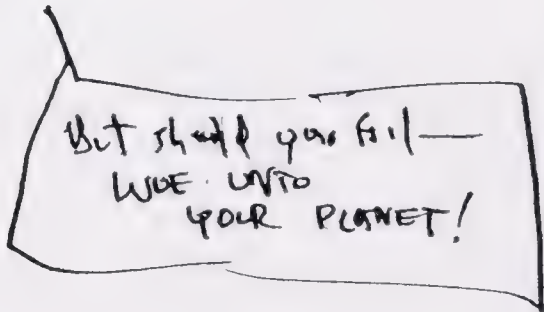 But should you fail—
WOE UNTO
YOUR PLANET!